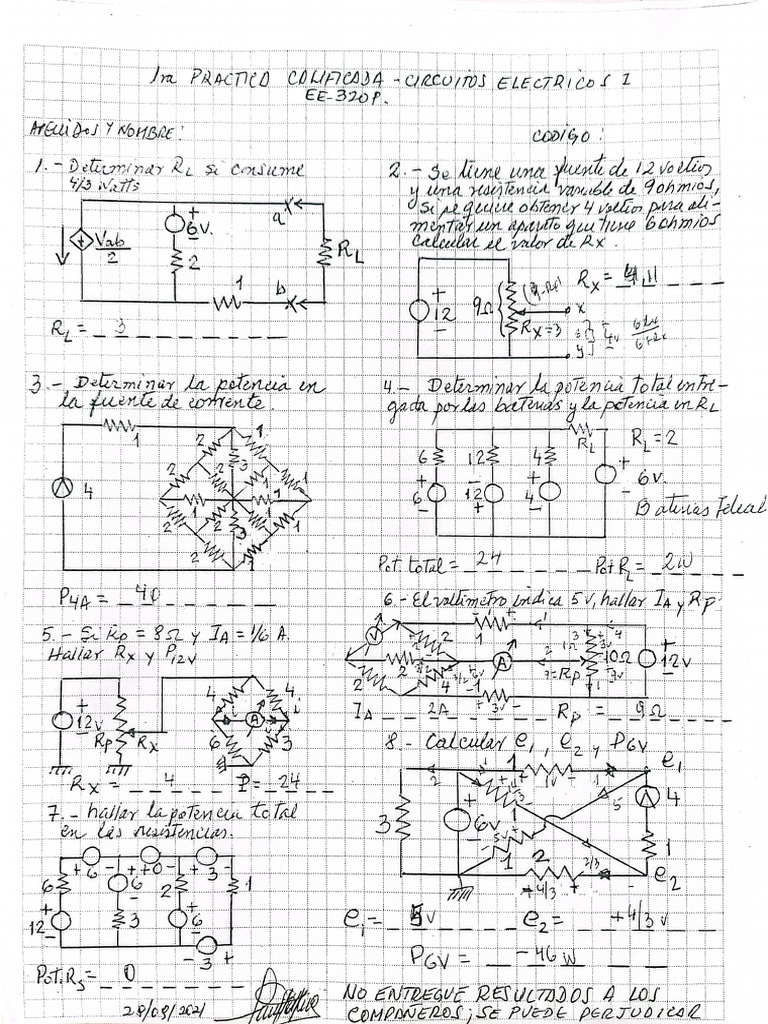 1ra PRACTICA CALIFICADA - CIRCUITOS ELECTRICOS I
EE-320P.
APELLIDOS Y NOMBRE:
CODIGO:
1.- Determinar RL si consume
4/3 Watts
Vab/2
+
6v.
-
2
1
a
b
RL
RL = 3
2.- Se tiene una fuente de 12 voltios
y una resistencia variable de 9 ohmios,
si se quiere obtener 4 voltios para ali-
mentar un aparato que tiene 6 ohmios
calcular el valor de Rx.
+
12
-
9Ω
Rx=3
x
y
4v
3.- Determinar la potencia en
la fuente de corriente.
1
4
2 1
2 3 1
1 1
2 2 3 1
2
P4A = 40
4.- Determinar la potencia total entre-
gada por las baterias y la potencia en RL
6 12 4
RL
RL = 2
+ 6 -
- 12 +
+ 4 -
+
6v.
-
Baterias Ideal
Pot. total = 24 Pot RL = 2W
5.- Si Rp = 8Ω y IA = 1/6 A.
Hallar Rx y P12V
+
12v
-
Rp
Rx
4 4
A
6 3
Rx = 4 P = 24
6.- El voltimetro indica 5v, hallar IA y Rp.
V
2 1
2 A
2 4
1
10Ω
Rp
+
12v
-
IA 2A Rp = 9Ω
7.- hallar la potencia total
en las resistencias.
+ 6 - + 0 - + 3 -
6 + 6 - 2 1
+ 12 - 3 + 6 -
- 3 +
Pot. Rs = 0
28/08/2021
8.- Calcular e1, e2 y P6V
1
e1
3
+
6v
-
5
4
1
1
2
+ 4/3 +
e2
e1 = 5v e2 = +4/3 v
P6V = -46 w
NO ENTREGUE RESULTADOS A LOS
COMPAÑEROS; SE PUEDE PERJUDICAR